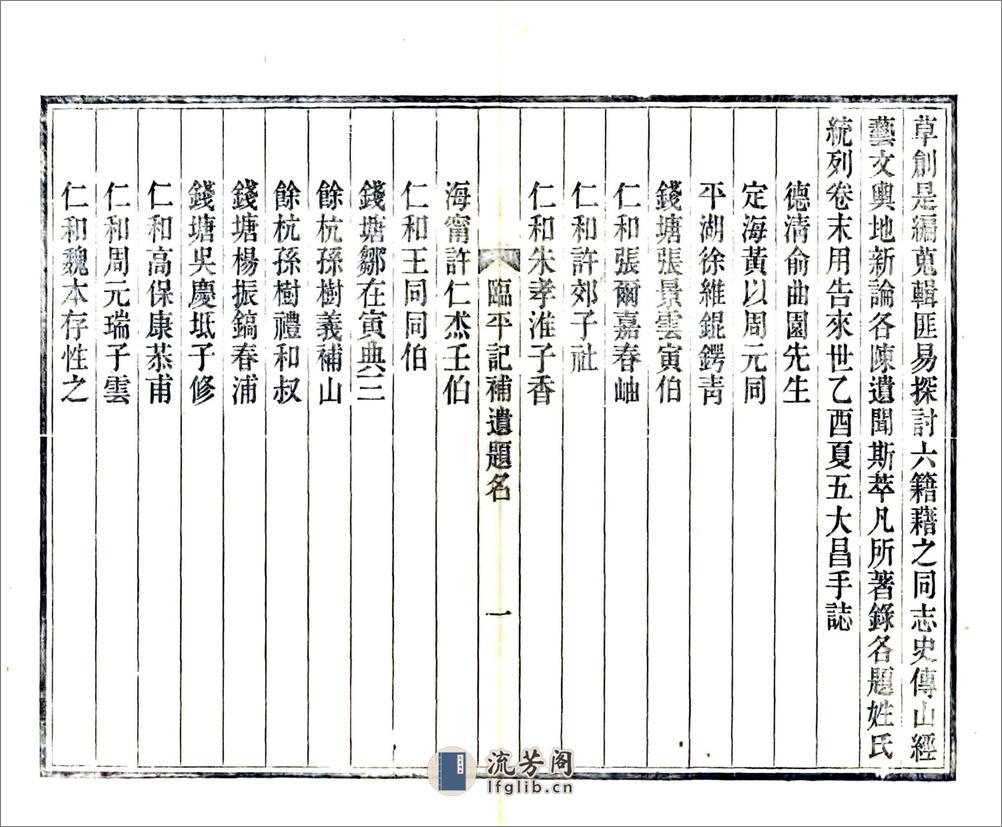 草創是編蒐輯匪易探討六籍藉之同志史傳山經
藝文輿地新論各陳遺聞斯萃凡所著錄各題姓氏
統列卷末用告來世乙酉夏五大昌手誌
德清俞曲園先生
定海黃以周元同
平湖徐維錕鍔靑
錢塘張景雲寅伯
仁和張爾嘉春岫
仁和許郊子社
仁和朱孝淮子香
臨平記補遺題名
一
海甯許仁杰壬伯
仁和王同同伯
錢塘鄒在寅典三
餘杭孫樹義補山
餘杭孫樹禮和叔
錢塘楊振鎬春浦
錢塘吳慶坻子修
仁和高保康恭甫
仁和周元瑞子雲
仁和魏本存性之
流芳阁
lfglib.cn